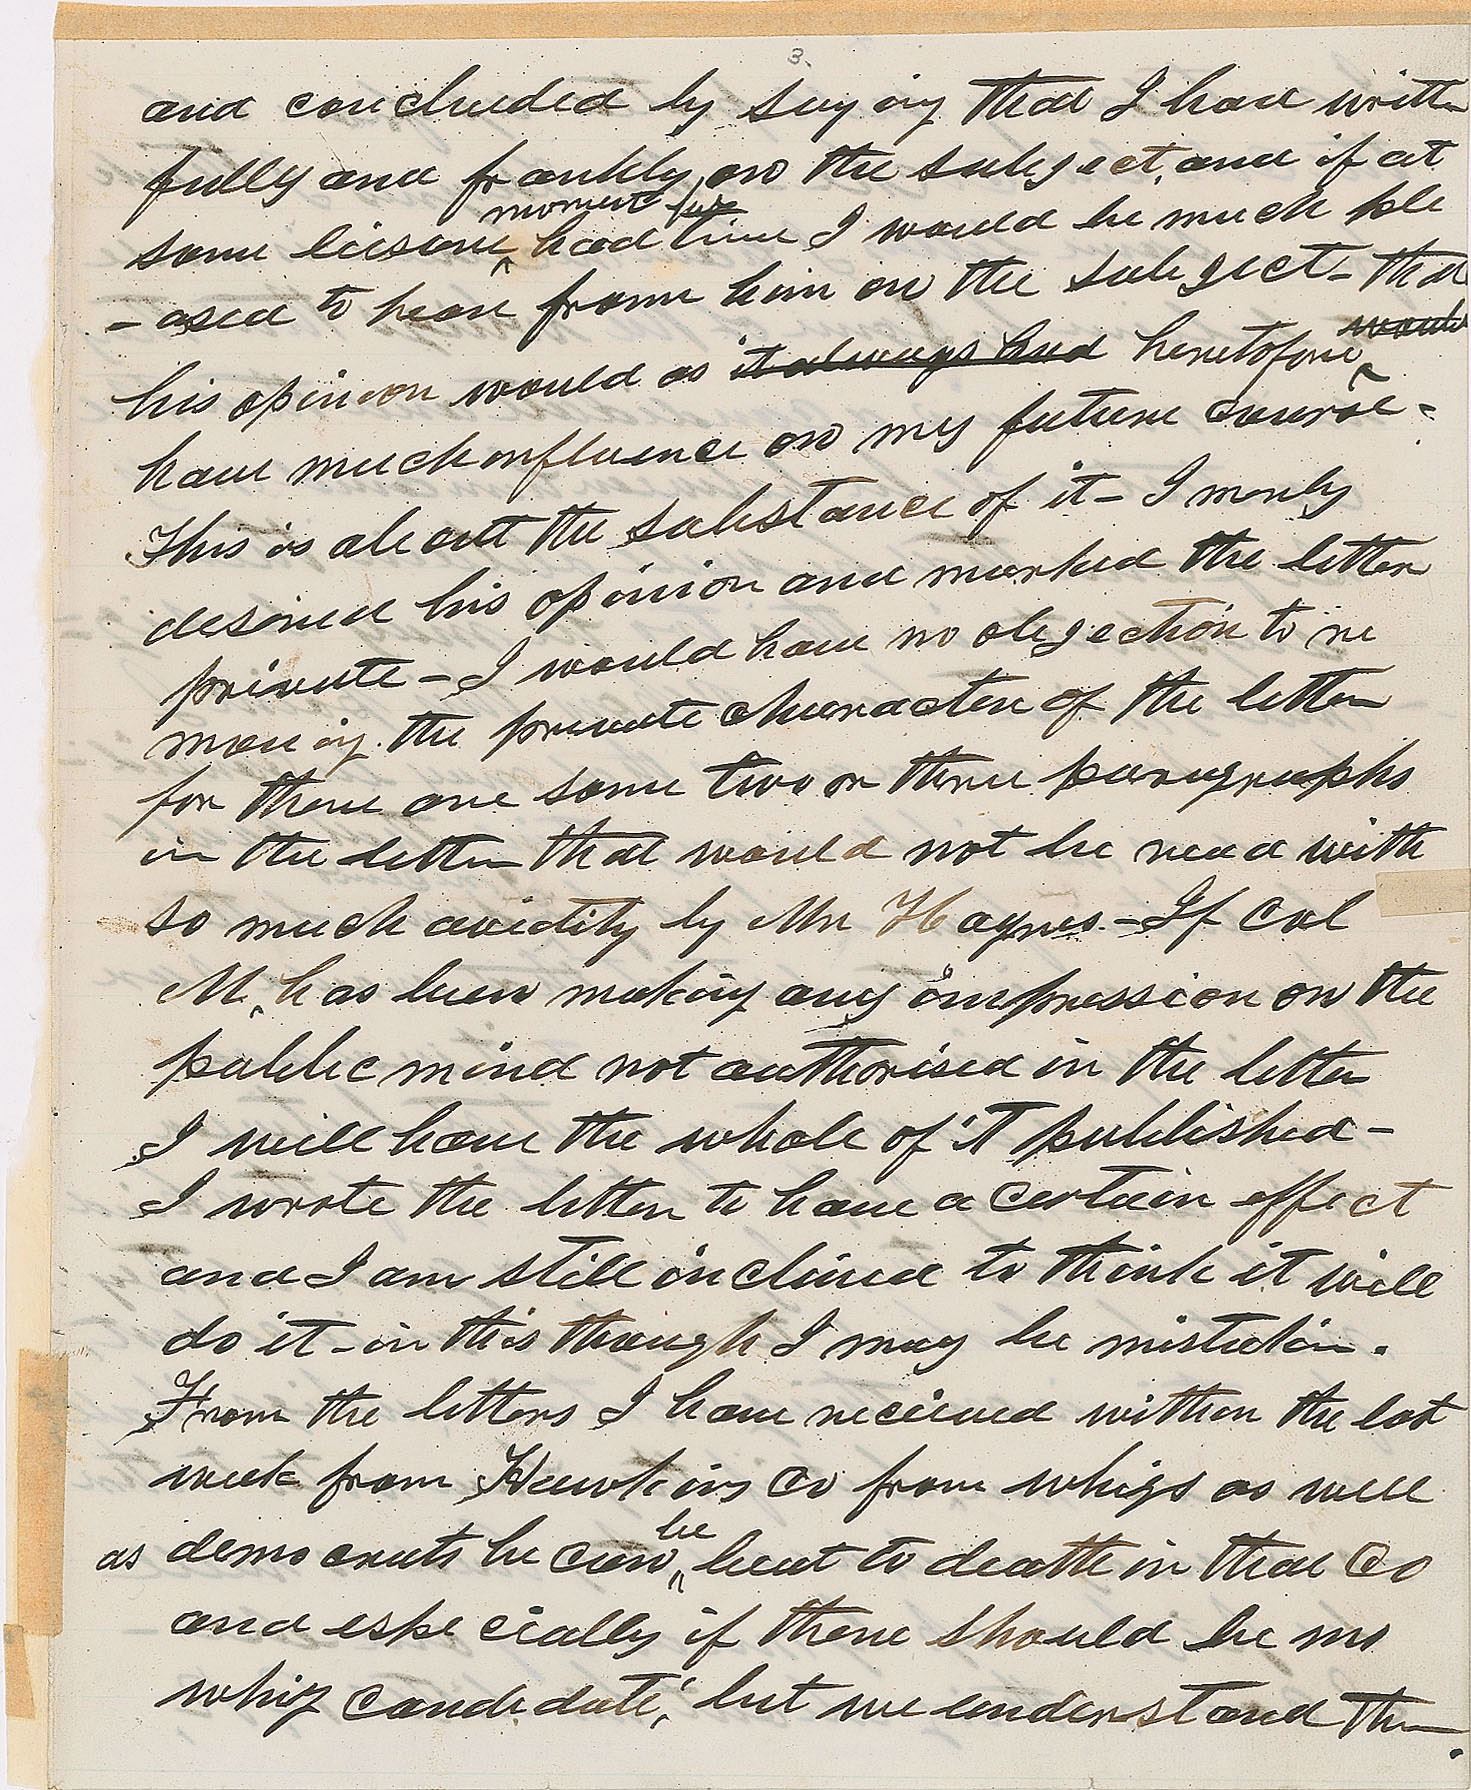 3.
and concluded by saying that I have written
fully and frankly, on the subject, and if at
moment he
some liesone ^ had time I would be much ple
-ased to hear from him on the subject - that
would
his opinion would as it always had heretofore ^
have much influence on my future course -
This is about the substance of it - I merely
desired his opinion and marked the letter
private - I would have no objection to re
moving the private character of the letter
for there are some two or three paragraphs
in the letter that would not be read with
so much avidity by Mr Haynes - If Col
M, has been making any impression on the
public mind not authorised in the letter
I will have the whole of it published -
I wrote the letter to have a certain effect
and I am still inclined to think it will
do it - in this though I may be mistakin.
From the letters I have recieved within the last
week from Hawkins Co from whigs as well
be
as democrats he can ^ beat to death in that Co
and especially if there should be no
whig candidate, but we understand the